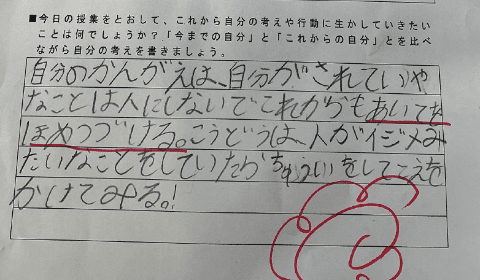 ■今日の授業をとおして、これから自分の考えや行動に生かしていきたい
ことは何でしょうか？「今までの自分」と「これからの自分」とを比べ
ながら自分の考えを書きましょう。
自分のかんがえは、自分がされていや
なことは人にしないでこれからもあいてを
ほめつづける。こうどうは、人がイジメみ
たいなことをしていたらちゅういをしてこえを
かけてみる。!